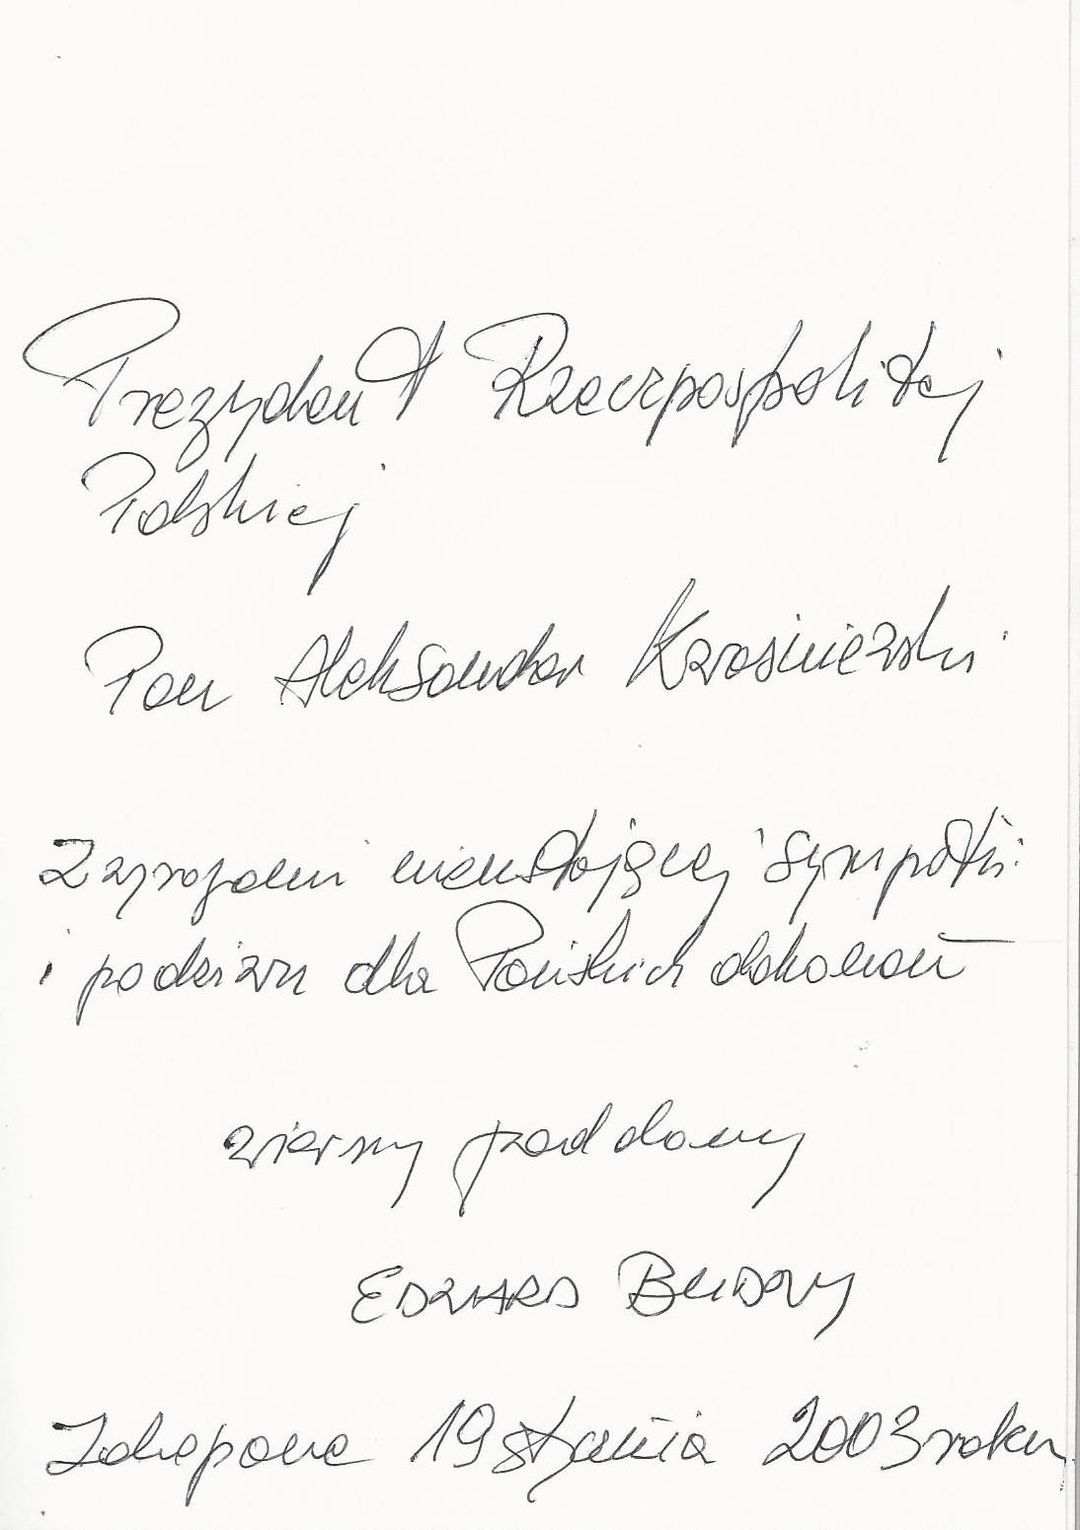 Prezydent Rzeczpospolitej
Polskiej
Pan Aleksander Kwaśniewski
Z wyrazami nieustającej sympatii
i podziwu dla Pańskich dokonań
wierny poddany
EDWARD BUDNY
Zakopane 19 stycznia 2003 roku